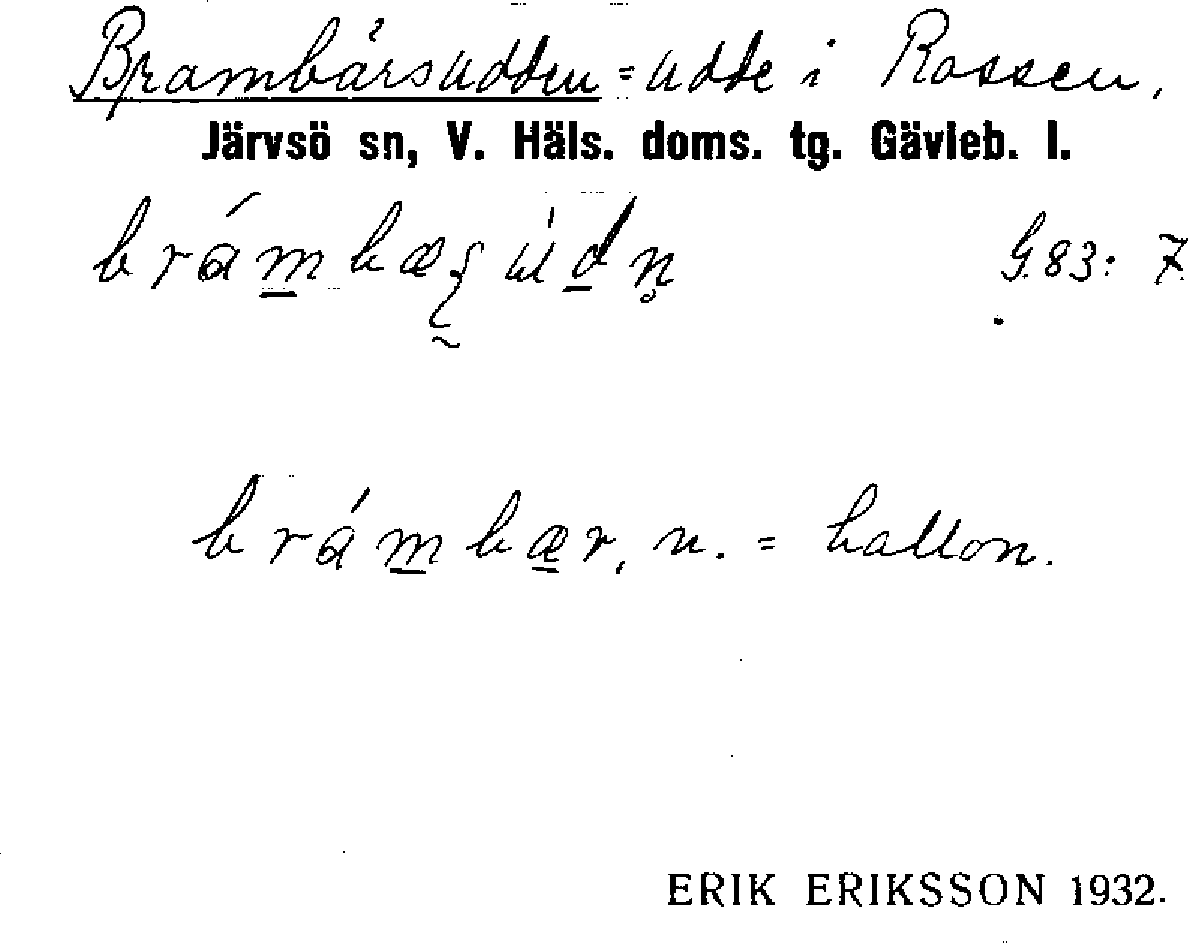 Brambärsudden = udde i Rossen,
Järvsö sn, V. Häls. doms. tg. Gävleb. l.
brámbæʂúdn̥ G.83: 7
brámbær, n. = hallon.
ERIK ERIKSSON 1932.